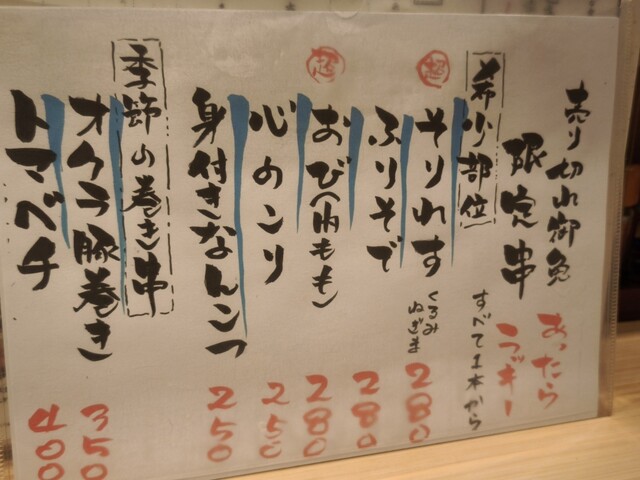 売り切れ御免
あったら
限定串
ラッキー
希少部位
すべて1本から
超
そりれす
くるみ
ねぎま
280
ふりそで
280
超
おび(内もも)
280
心のこり
250
身付きなんこつ
250
季節の巻き串
オクラ豚巻き
350
トマベチ
400